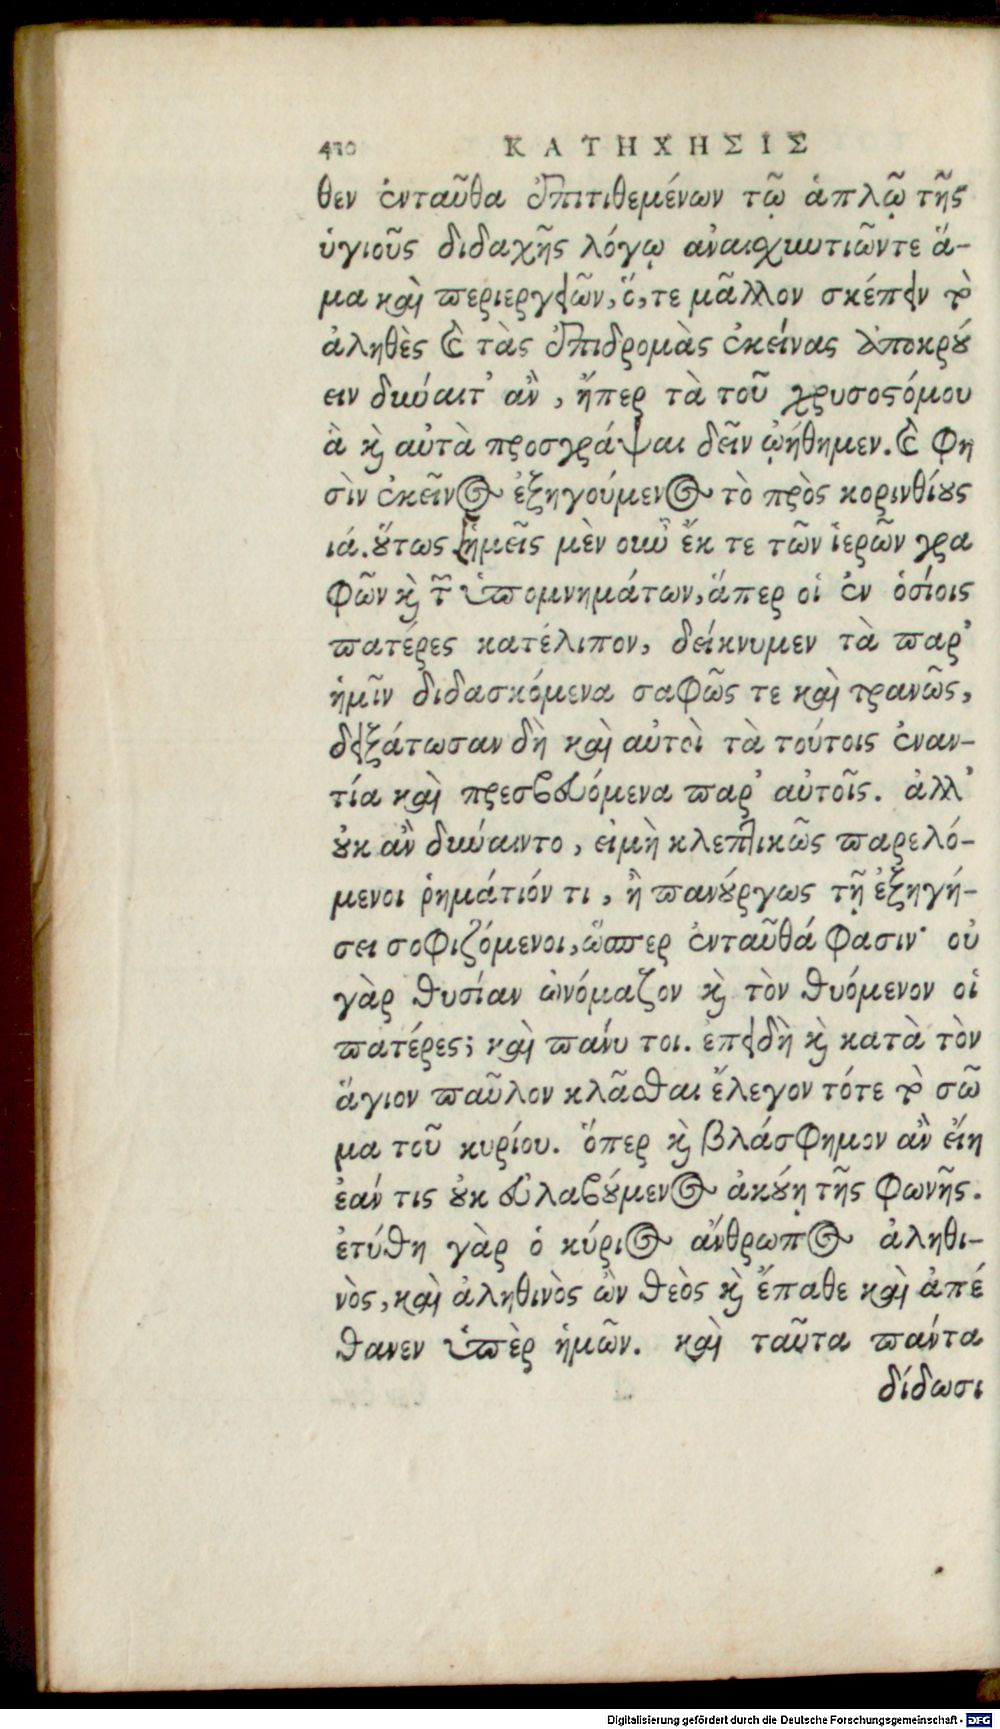 410 ΚΑΤΗΧΗΣΙΣ
θεν ἐνταῦθα ἐπιτιθεμένων τῷ ἁπλῷ τῆς
ὑγιοῦς διδαχῆς λόγῳ ἀναισχυντιῶντε ἅ-
μα καὶ περιεργειῶν, ὅ, τε μᾶλλον σκέπειν τὸ
ἀληθὲς καὶ τὰς ἐπιδρομὰς ἐκείνας ἀποκρού
ειν δύναιτ' ἂν, ἤπερ τὰ τοῦ χρυσοστόμου
ἃ καὶ αὐτὰ προσγράψαι δεῖν ᾠήθημεν. καὶ φη
σὶν ἐκεῖνος ἐξηγούμενος τὸ πρὸς κορινθίους
ιά. οὕτως ἡμεῖς μὲν οὖν ἔκ τε τῶν ἱερῶν γρα
φῶν καὶ τῶν ὑπομνημάτων, ἅπερ οἱ ἐν ὁσίοις
πατέρες κατέλιπον, δείκνυμεν τὰ παρ'
ἡμῖν διδασκόμενα σαφῶς τε καὶ τρανῶς,
δειξάτωσαν δὴ καὶ αὐτοὶ τὰ τούτοις ἐναν-
τία καὶ πρεσβευόμενα παρ' αὐτοῖς. ἀλλ'
οὐκ ἂν δύναιντο, εἰμὴ κλεπτικῶς παρελό-
μενοι ῥημάτιόν τι, ἢ πανούργως τῇ ἐξηγή-
σει σοφιζόμενοι, ὥσπερ ἐνταῦθά φασιν· οὐ
γὰρ θυσίαν ὠνόμαζον καὶ τὸν θυόμενον οἱ
πατέρες; καὶ πάνυ τοι. ἐπειδὴ καὶ κατὰ τὸν
ἅγιον παῦλον κλᾶσθαι ἔλεγον τότε τὸ σῶ
μα τοῦ κυρίου. ὅπερ καὶ βλάσφημον ἂν εἴη
ἐάν τις οὐκ εὐλαβούμενος ἀκούῃ τῆς φωνῆς.
ἐτύθη γὰρ ὁ κύριος ἄνθρωπος ἀληθι-
νὸς, καὶ ἀληθινὸς ὢν θεὸς καὶ ἔπαθε καὶ ἀπέ
θανεν ὑπὲρ ἡμῶν. καὶ ταῦτα πάντα
δίδωσι
Digitalisierung gefördert durch die Deutsche Forschungsgemeinschaft - DFG